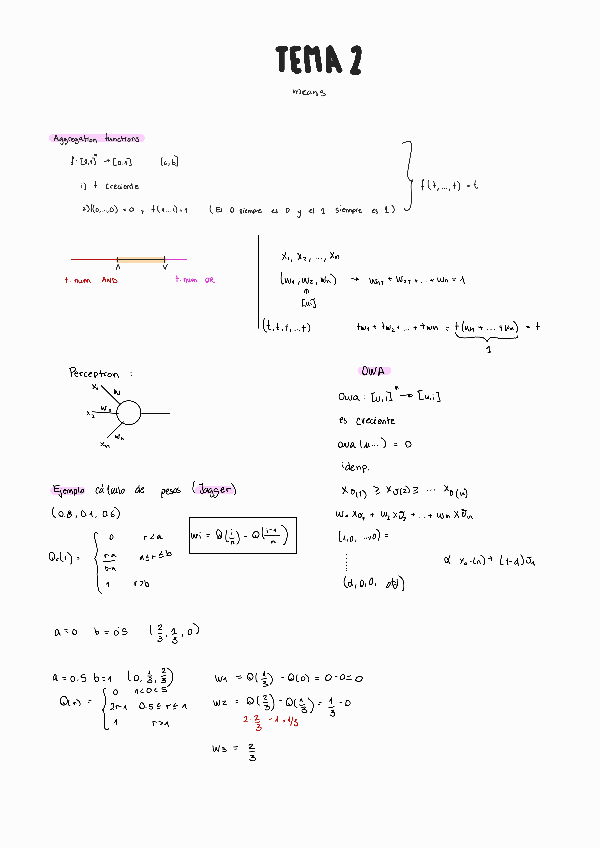 TEMA 2
means
Aggregation functions
f: [0,1]^n → [0,1] [a,b]
1) f creciente
2) f(0,...,0) = 0 , f(1...1) = 1 (El 0 siempre es 0 y el 1 siempre es 1)
f(t,...,t) = t
∧ ∨
t. num AND t. num OR
x1, x2, ..., xn
(w1, w2, wn) → w1 + w2 + ... + wn = 1
[wi]
(t, t, t, ... t) tw1 + tw2 + ... + twn = t(w1 + ... + wn) = t
1
Perceptron :
x1 w1
x2 w2
xn wn
OWA
owa : [u,i]^n → [u,i]
es creciente
owa (u...) = 0
idenp.
xσ(1) ≥ xσ(2) ≥ ... xσ(n)
w1 xσ1 + w2 xσ2 + ... + wn xσn
(1,0, ...,0) =
Ejemplo cálculo de pesos (Jagger)
(0.8, 0.1, 0.6)
Qc(r) = { 0 r<a
r-a / b-a a≤r≤b
1 r>b
wi = Q(i/n) - Q(i-1/n)
a=0 b=0.5 (2/3, 1/3, 0)
a=0.5 b=1 (0, 1/3, 2/3)
Q(r) = { 0
2r-1 0.5 ≤ r ≤ 1
1 r>1
w1 = Q(1/3) - Q(0) = 0-0 = 0
w2 = Q(2/3) - Q(1/3) = 1/3 - 0
2·2/3 - 1 = 1/3
w3 = 2/3